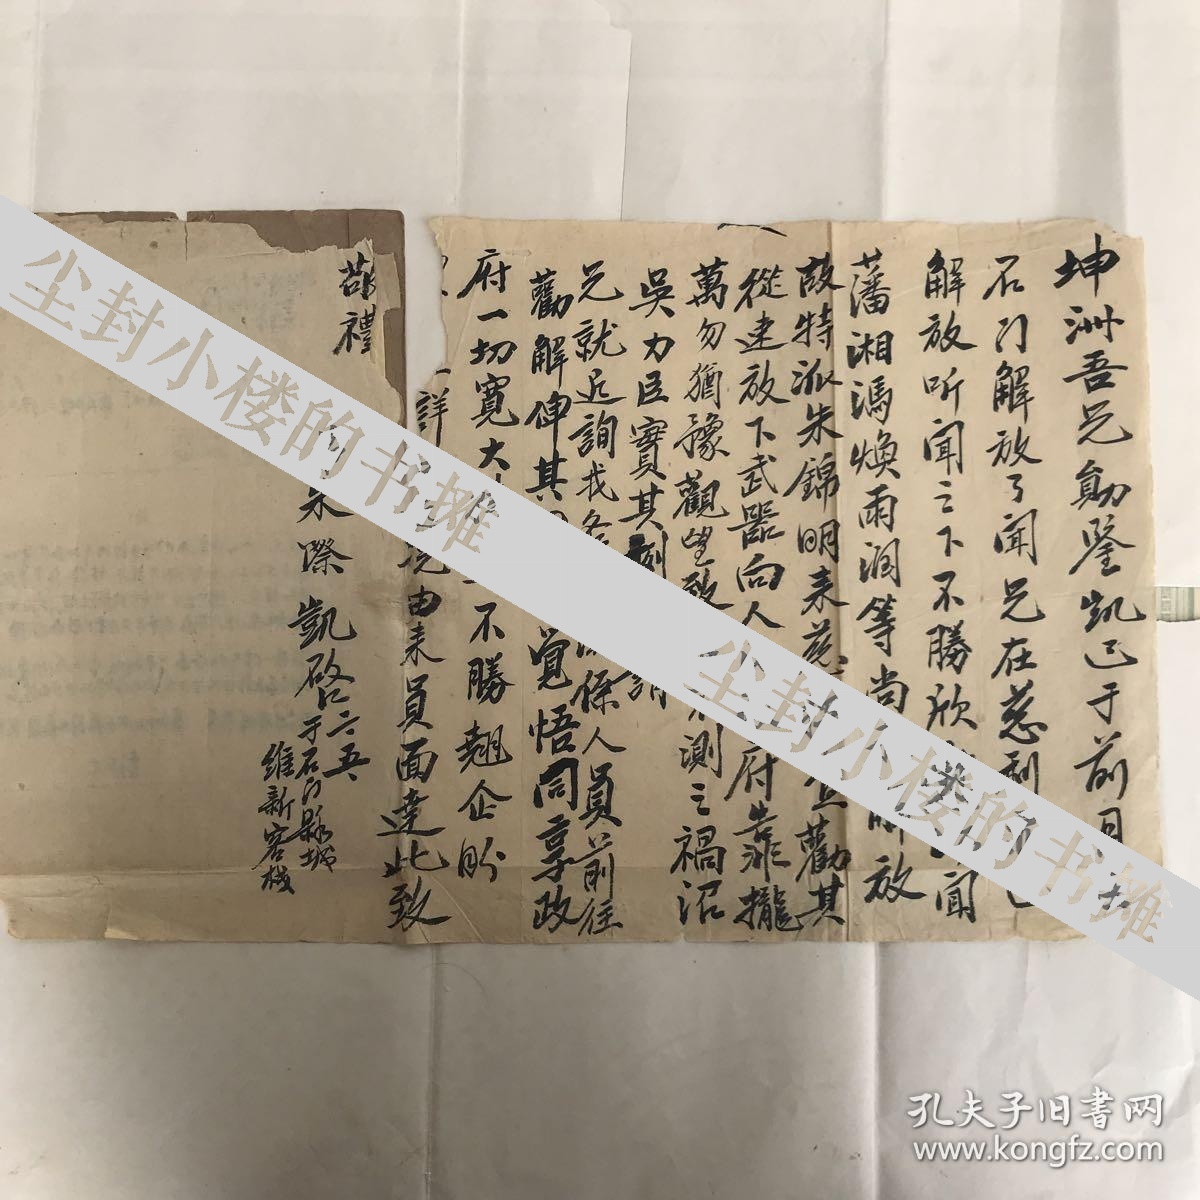 坤洲吾兄勛鑒凱已于前月
石门解放了闻兄在慈利已
解放听闻之下不勝欣
闻
藩湘馮煥雨润等尚
解放
故特派朱錦明来慈
勸其
從速放下武器向人
府靠攏
萬勿猶豫觀望致
不測之禍沼
吳力臣實其刻
兄就近詢找各
係人員前往
勸解俾其
覺悟同享政
府一切寬大
不勝翹企盼
詳
由来員面達此致
敬禮
朱際凱啓六五
于石门縣城
維新客棧
尘封小楼的书摊
尘封小楼的书摊
孔夫子旧书网
www.kongfz.com